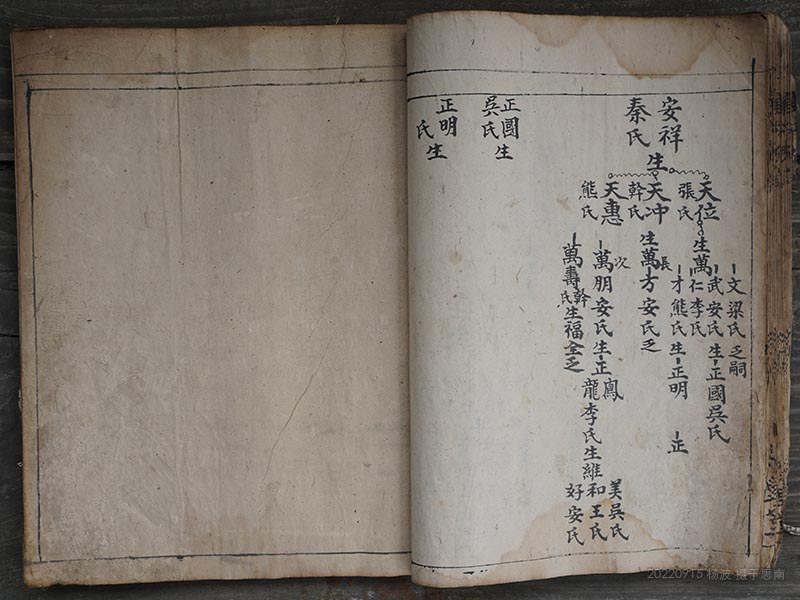 安祥
秦氏
生
天位
張氏
天冲
幹氏
天惠
熊氏
生萬
文梁氏乏嗣
武安氏生正國吳氏
仁李氏
才熊氏生正明
正
生萬
長
方安氏乏
次
萬朋安氏生正鳳
龍李氏生維和王氏
美吳氏
好安氏
萬壽幹氏生福全乏
正國生
吳氏
正明生
氏
20220915 杨波 摄于思南